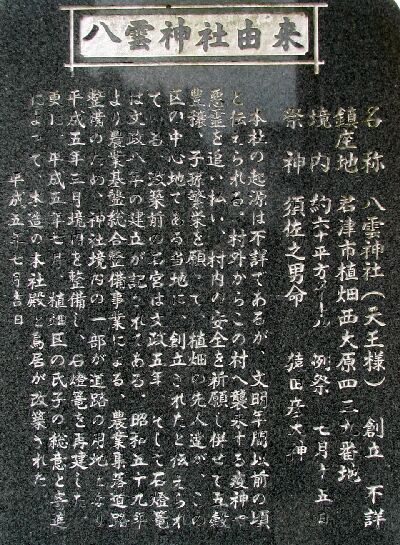 八雲神社由来
名称 八雲神社(天王様) 創立 不詳
鎮座地 君津市植畑西大原四三九番地
境内 約六十平方メートル 例祭 七月十五日
祭神 須佐之男命 猿田彦大神
本社の起源は不詳であるが、文明年間以前の頃
と伝えられる。村外からこの村へ襲来する疫神や
悪霊を追い払い、村内の安全を祈願し併せて五穀
豊穣、子孫繁栄を願って、植畑の先人達が、この
区の中心地である当地に、創立されたと伝えられ
ている。改築前のお宮は文政五年、そして石燈篭
は文政八年の建立が記されてある。昭和五十九年
より農業基盤総合整備事業による、農業集落道路
整備のため、神社境内の一部が道路の用地となり
平成五年三月境内を整備し、石燈篭を再建した。
更に、平成五年七月、植畑区の氏子の総意と寄進
によって、木造の本社殿と鳥居が改築された。
平成五年七月吉日